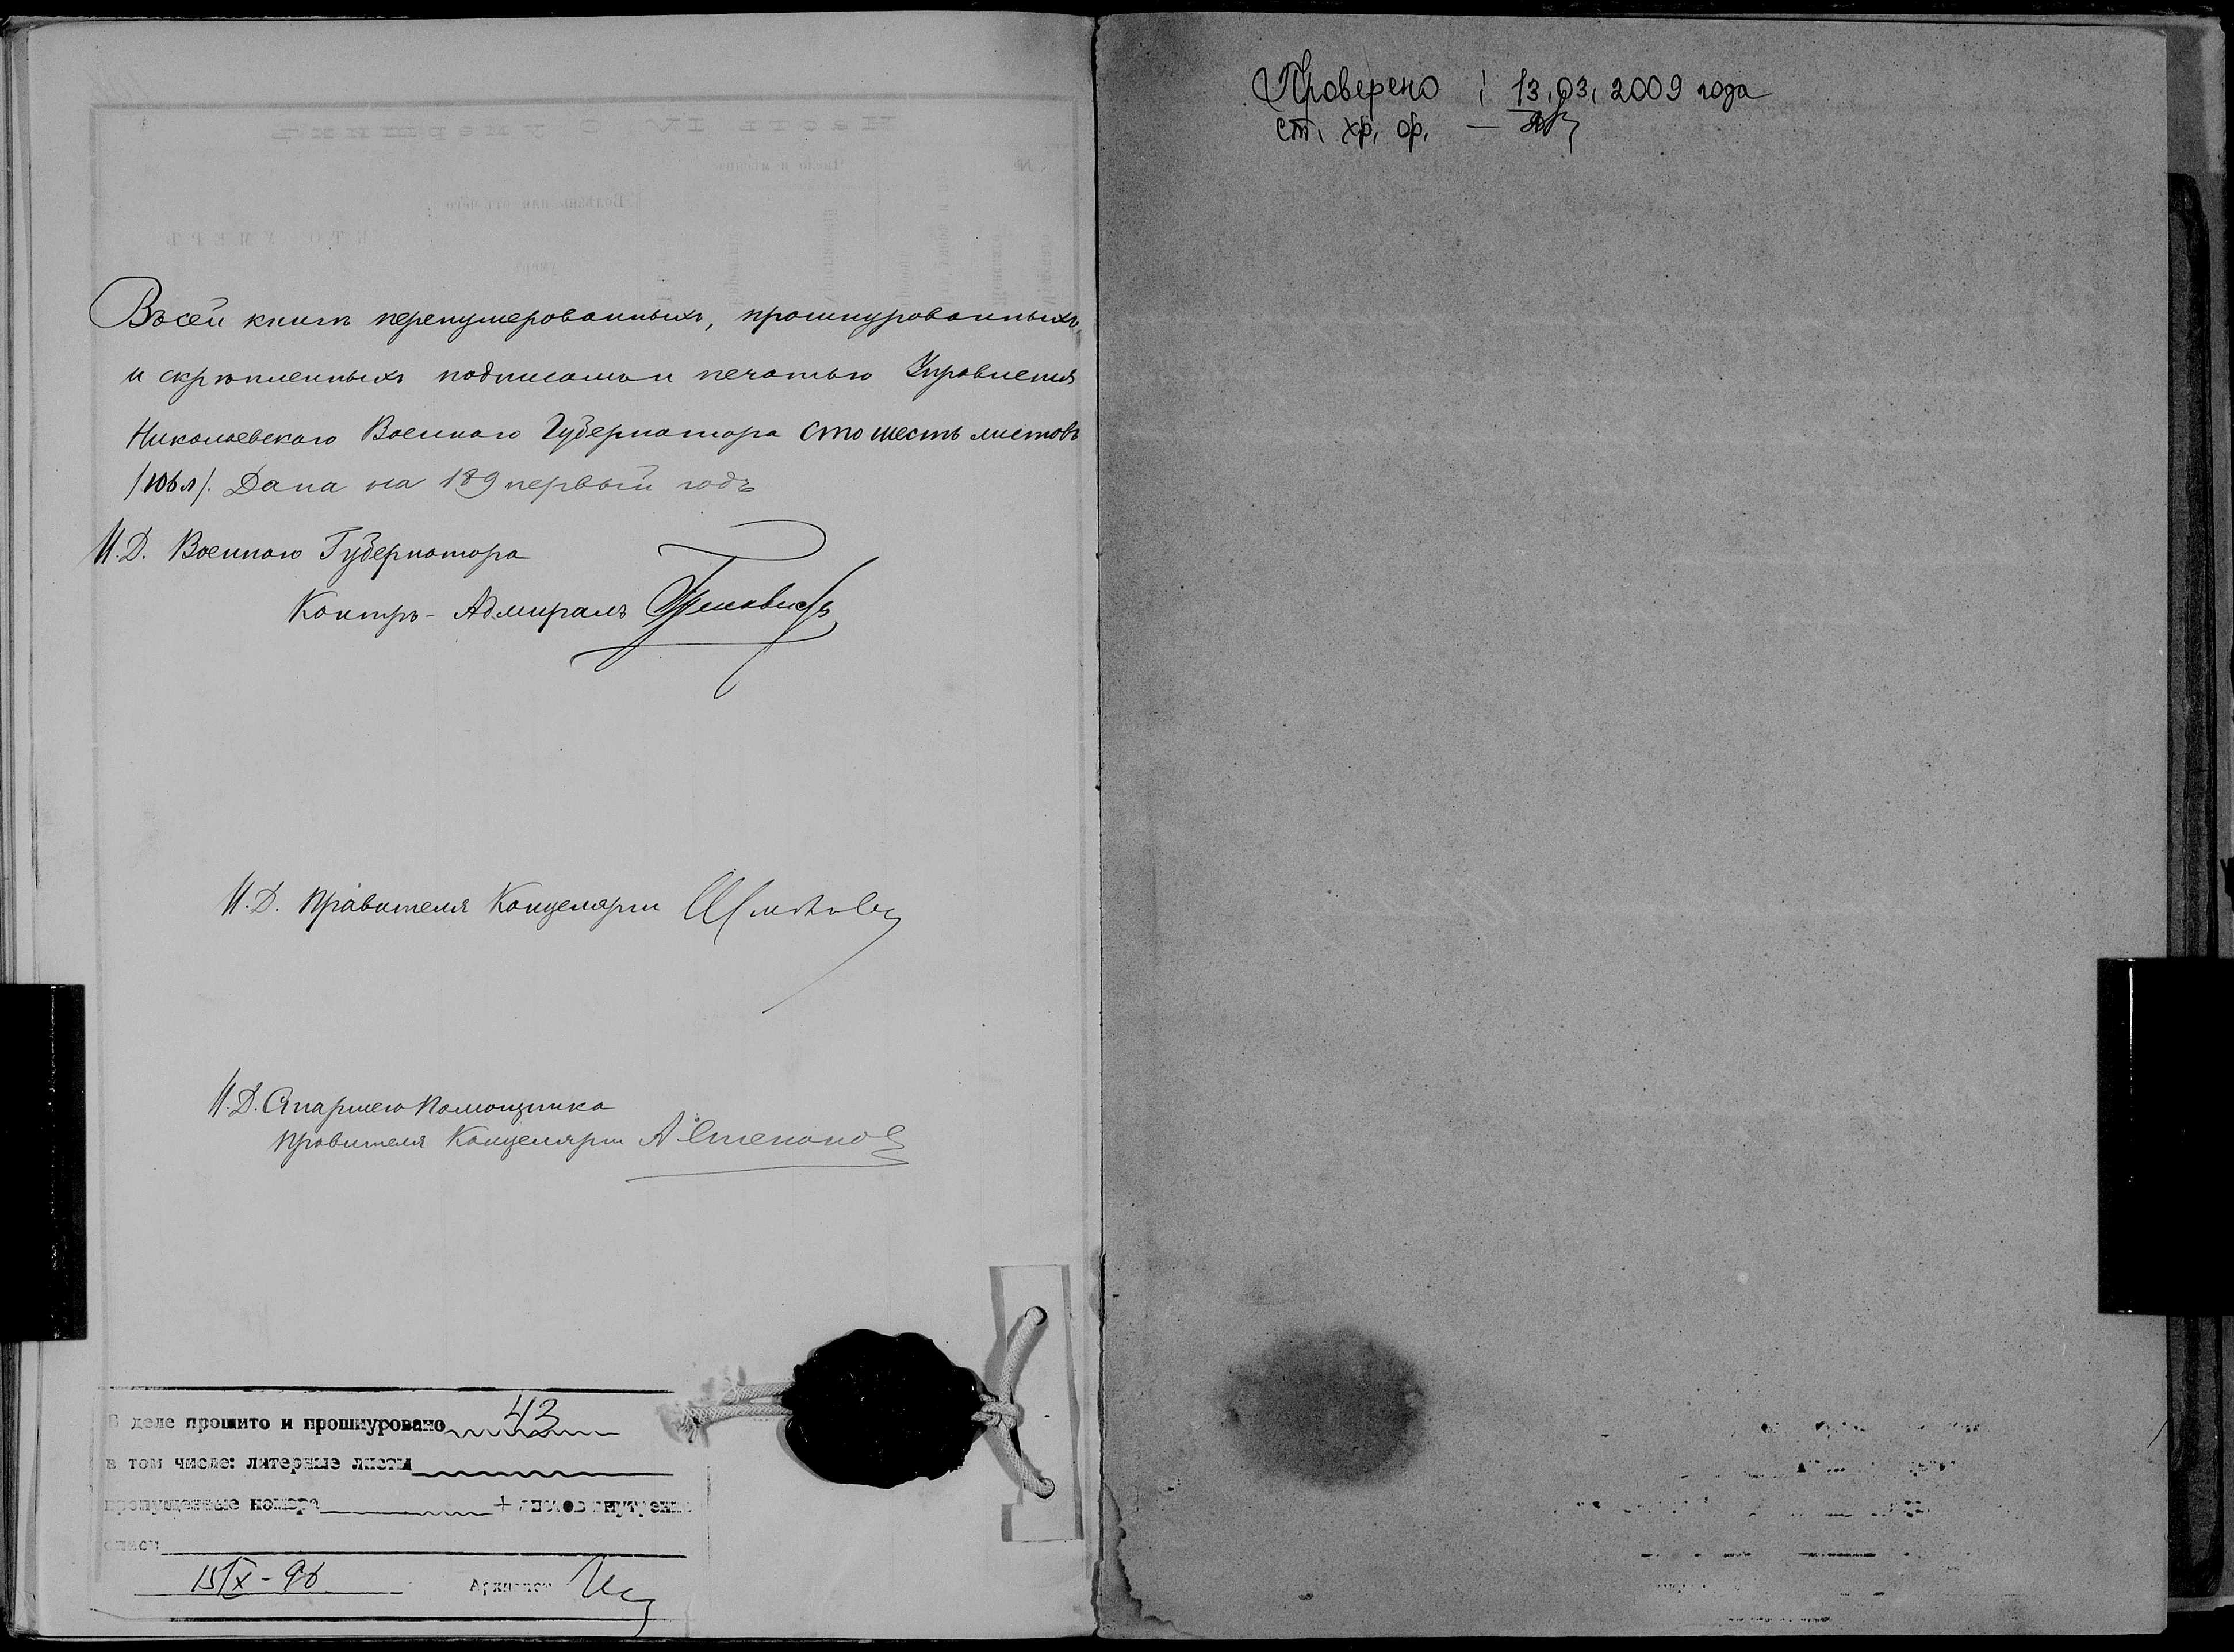 Въ сей книгѣ перенумерованныхъ, прошнурованныхъ
и скрѣпленныхъ подписом и печатью Управления
Николаевскаго Военнаго Губернатора сто шесть листовъ
/106 л/. Дана на 189 первый годъ
И.Д. Военнаго Губернатора
Контръ-Адмиралъ
И.Д. Правителя Канцелярiи
И.Д. Старшего Помощника
Правителя Канцелярiи А Степанов
В деле прошито и прошнуровано 43
в том числе: литерные листы
пропущенные номера + листов внутрен
описи
15/X-96 Архивист
Проверено: 13.03.2009 года
ст. хр. ор. —
Часть IV О умершихъ
КТО УМЕРЪ